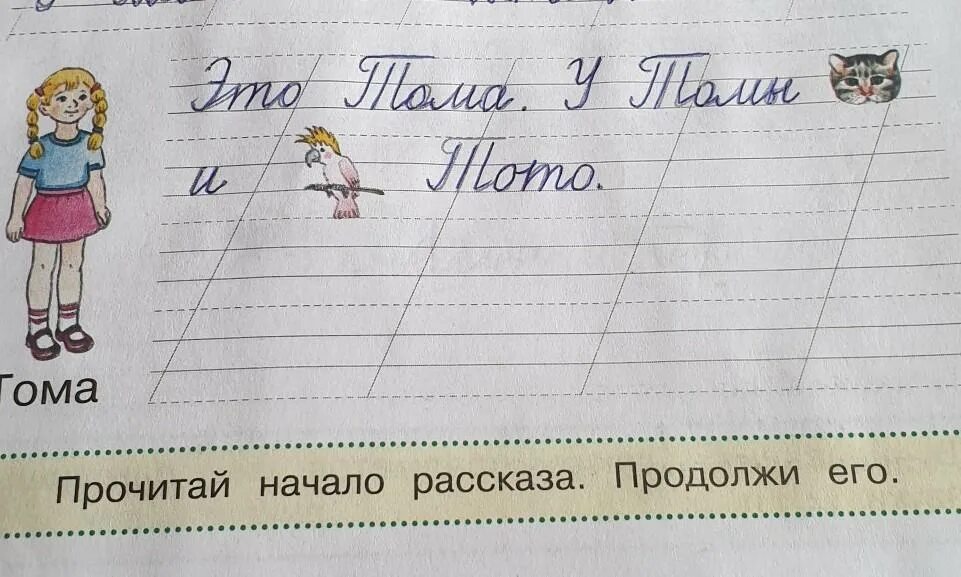 Это Тома. У Томы
и Тото.
Тома
Прочитай начало рассказа. Продолжи его.